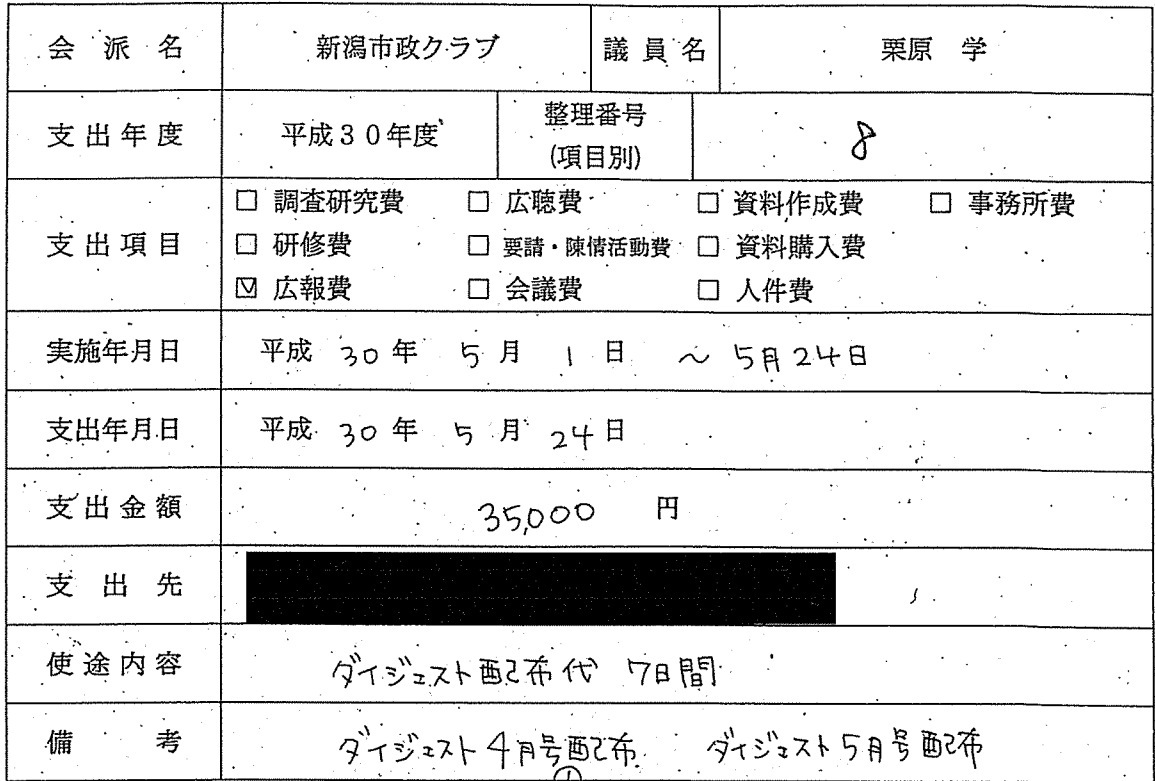 会派名 新潟市政クラブ 議員名 栗原 学
支出年度 平成30年度 整理番号 (項目別) 8
支出項目
□ 調査研究費 □ 広聴費 □ 資料作成費 □ 事務所費
□ 研修費 □ 要請・陳情活動費 □ 資料購入費
☑ 広報費 □ 会議費 □ 人件費
実施年月日 平成 30年 5月 1日 ~ 5月24日
支出年月日 平成 30年 5月 24日
支出金額 35,000 円
支出先
使途内容 ダイジェスト配布代 7日間
備考 ダイジェスト4月号配布 ダイジェスト5月号配布